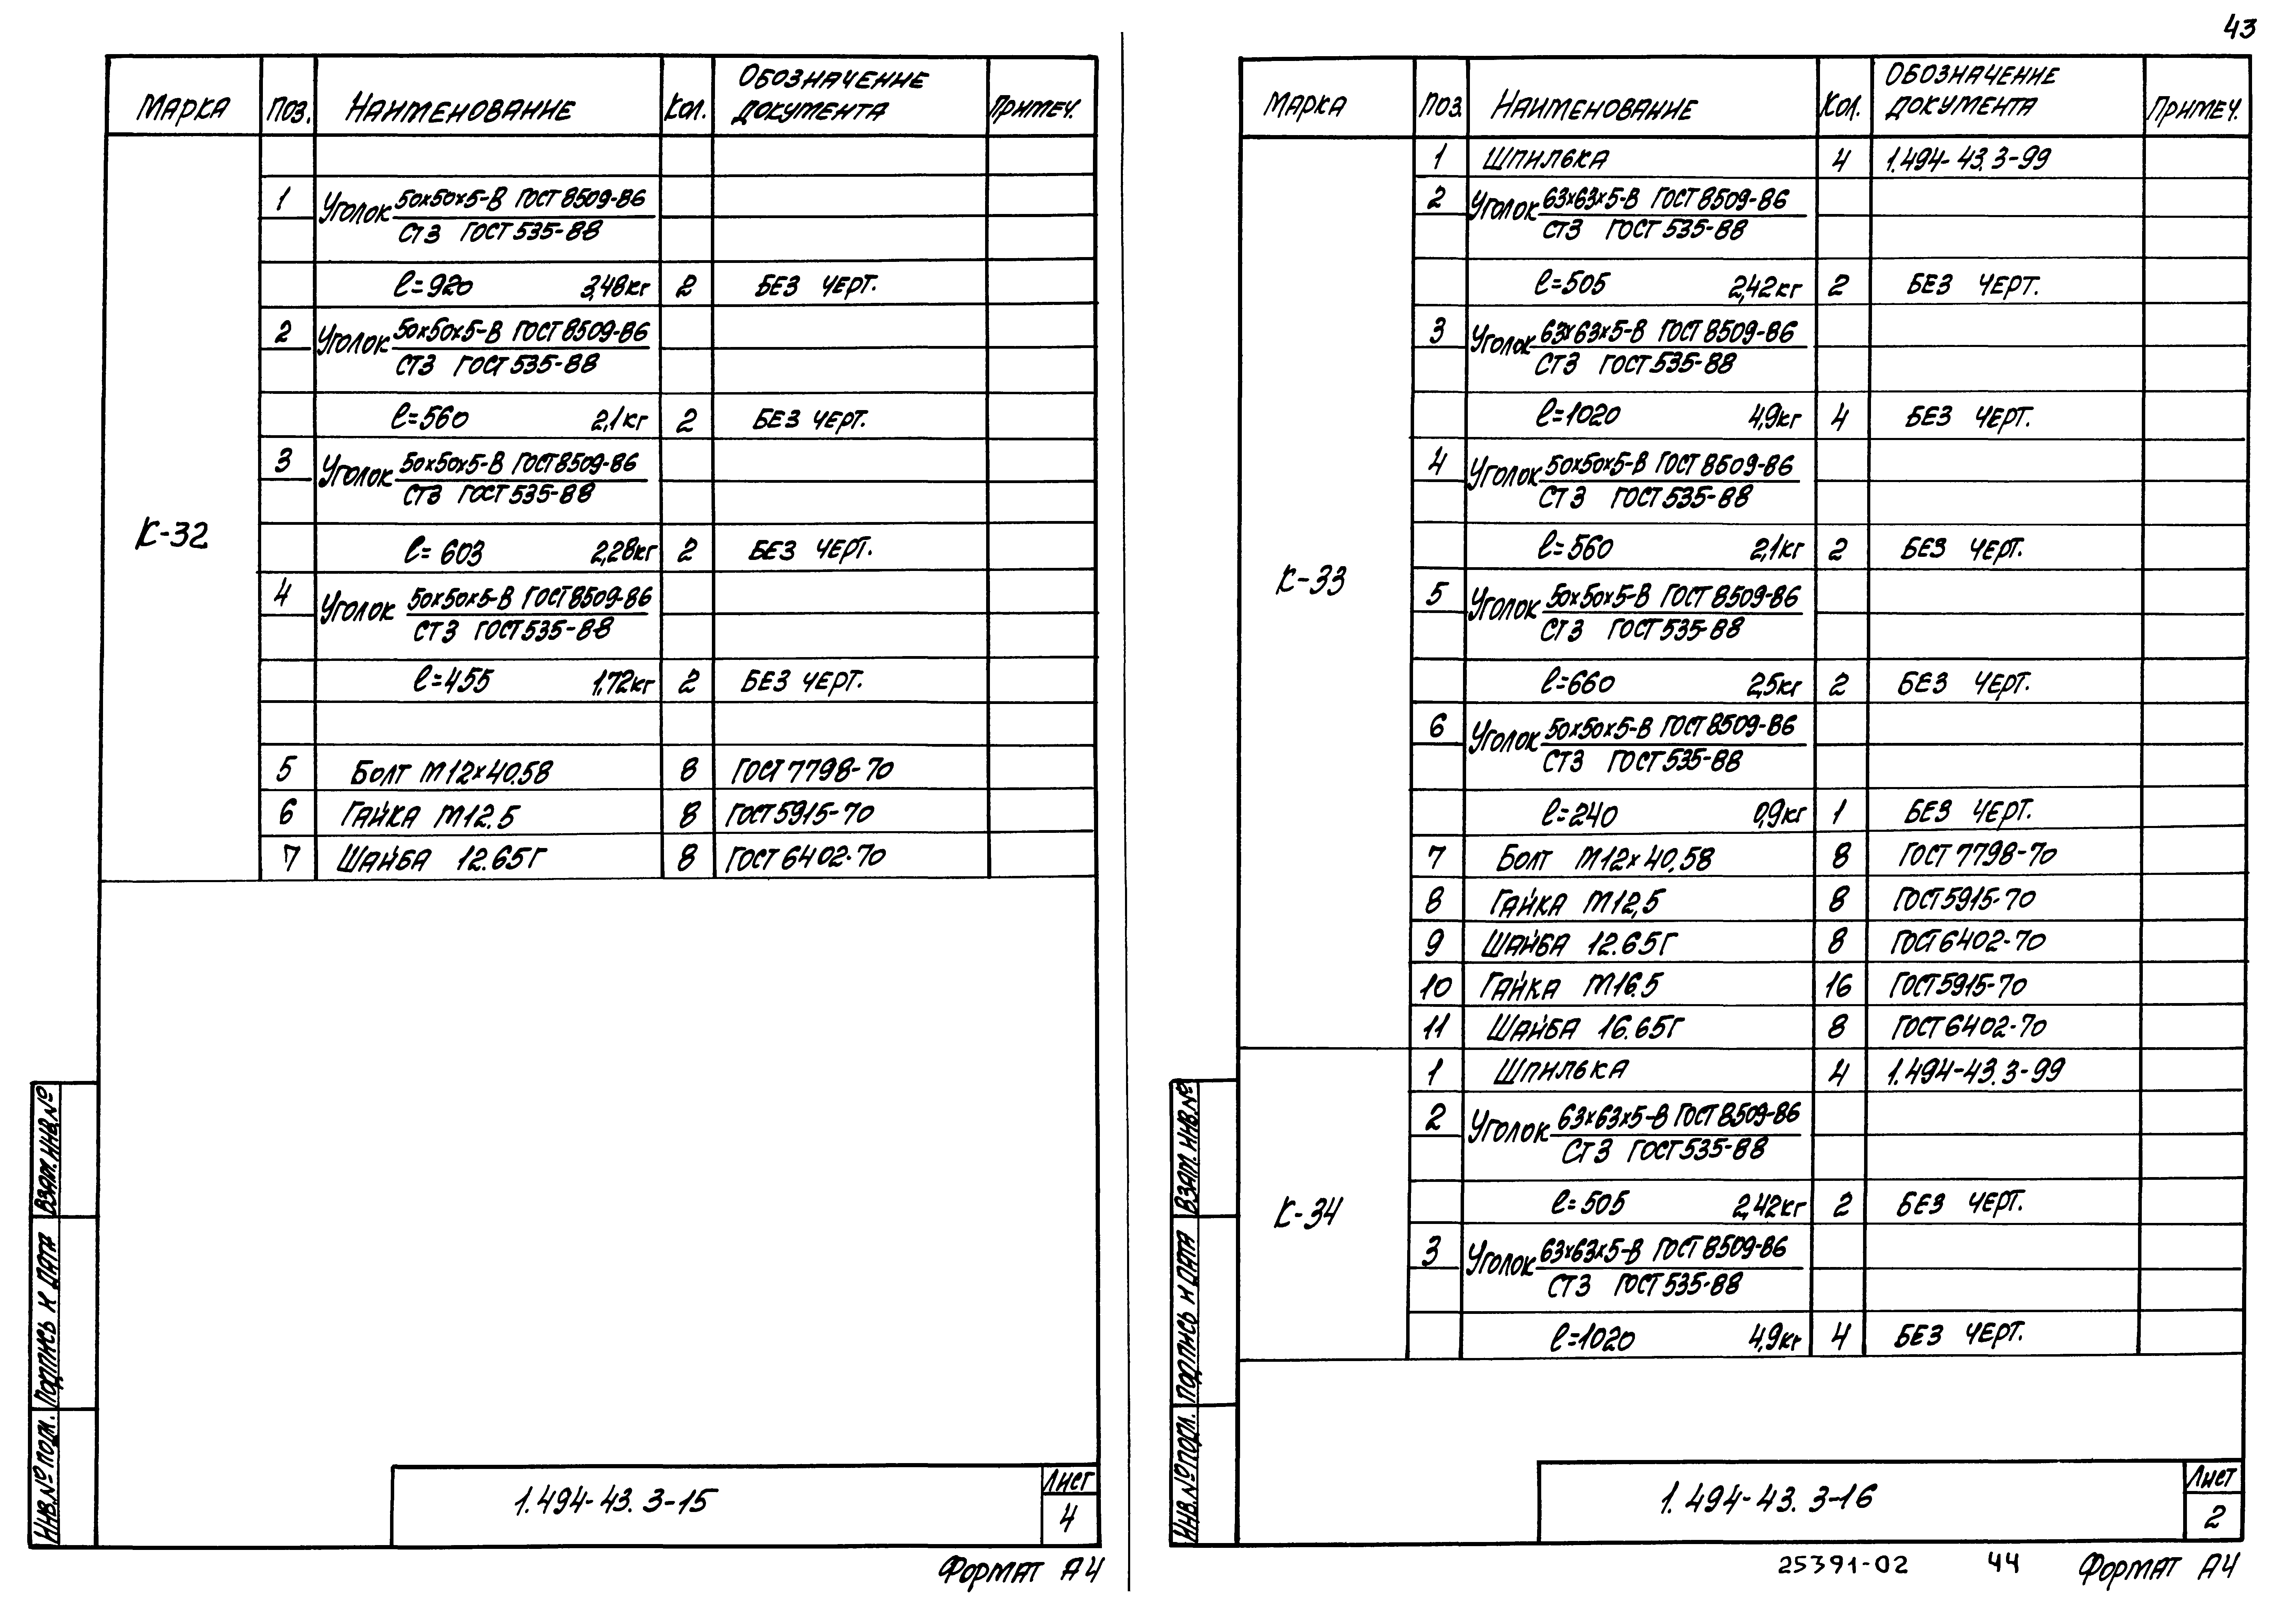 43
Марка Поз. Наименование Кол. Обозначение документа Примеч.
К-32
1 Уголок 50х50х5-В ГОСТ 8509-86
Ст3 ГОСТ 535-88
ℓ=920 3,48кг 2 Без черт.
2 Уголок 50х50х5-В ГОСТ 8509-86
Ст3 ГОСТ 535-88
ℓ=560 2,1кг 2 Без черт.
3 Уголок 50х50х5-В ГОСТ 8509-86
Ст3 ГОСТ 535-88
ℓ=603 2,28кг 2 Без черт.
4 Уголок 50х50х5-В ГОСТ 8509-86
Ст3 ГОСТ 535-88
ℓ=455 1,72кг 2 Без черт.
5 Болт М12х40.58 8 ГОСТ 7798-70
6 Гайка М12.5 8 ГОСТ 5915-70
7 Шайба 12.65Г 8 ГОСТ 6402-70
Взам. инв. №
Подпись и дата
Инв. № подл.
1.494-43.3-15
Лист
4
Формат А4
Марка Поз. Наименование Кол. Обозначение документа Примеч.
К-33
1 Шпилька 4 1.494-43.3-99
2 Уголок 63х63х5-В ГОСТ 8509-86
Ст3 ГОСТ 535-88
ℓ=505 2,42кг 2 Без черт.
3 Уголок 63х63х5-В ГОСТ 8509-86
Ст3 ГОСТ 535-88
ℓ=1020 4,9кг 4 Без черт.
4 Уголок 50х50х5-В ГОСТ 8509-86
Ст3 ГОСТ 535-88
ℓ=560 2,1кг 2 Без черт.
5 Уголок 50х50х5-В ГОСТ 8509-86
Ст3 ГОСТ 535-88
ℓ=660 2,5кг 2 Без черт.
6 Уголок 50х50х5-В ГОСТ 8509-86
Ст3 ГОСТ 535-88
ℓ=240 0,9кг 1 Без черт.
7 Болт М12х40,58 8 ГОСТ 7798-70
8 Гайка М12,5 8 ГОСТ 5915-70
9 Шайба 12.65Г 8 ГОСТ 6402-70
10 Гайка М16.5 16 ГОСТ 5915-70
11 Шайба 16.65Г 8 ГОСТ 6402-70
К-34
1 Шпилька 4 1.494-43.3-99
2 Уголок 63х63х5-В ГОСТ 8509-86
Ст3 ГОСТ 535-88
ℓ=505 2,42кг 2 Без черт.
3 Уголок 63х63х5-В ГОСТ 8509-86
Ст3 ГОСТ 535-88
ℓ=1020 4,9кг 4 Без черт.
Взам. инв. №
Подпись и дата
Инв. № подл.
1.494-43.3-16
Лист
2
25391-02 44 Формат А4